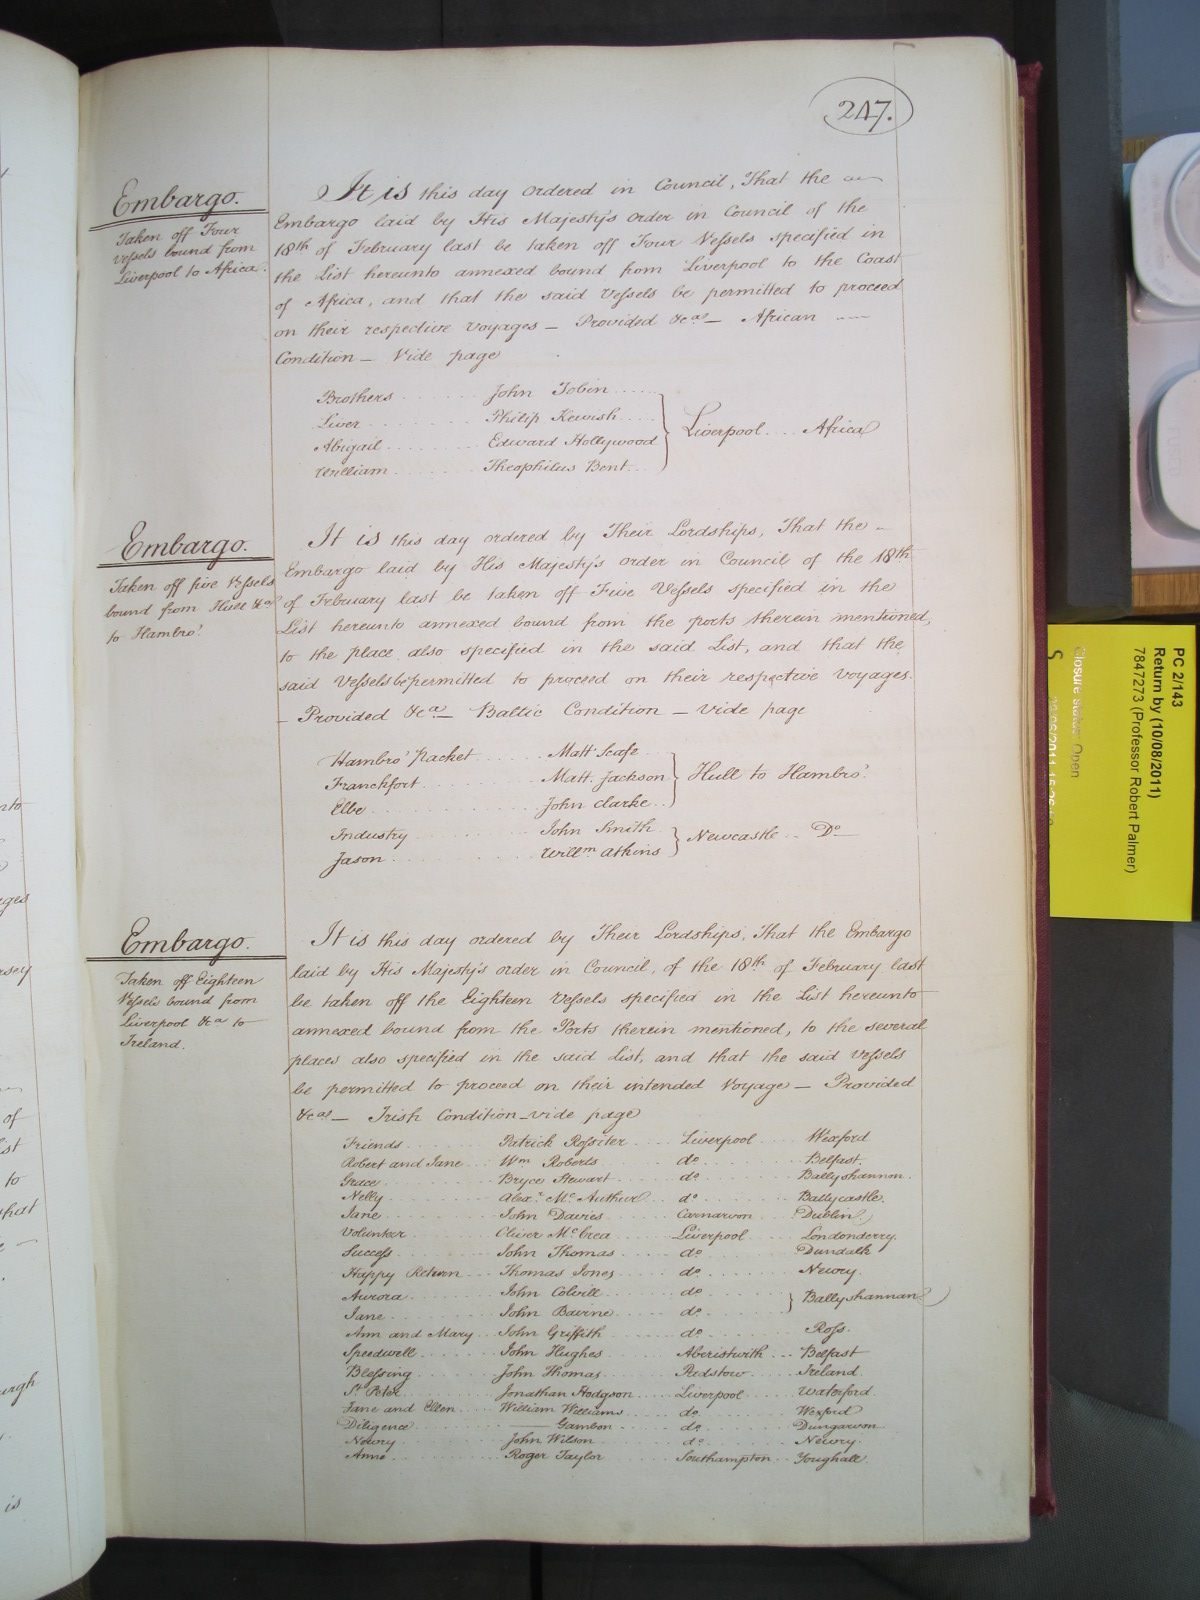 247.
Embargo.
Taken off Four
Vessels bound from
Liverpool to Africa.
It is this day ordered in Council, That the
Embargo laid by His Majesty's order in Council of the
18th of February last be taken off Four Vessels specified in
the List hereunto annexed bound from Liverpool to the Coast
of Africa, and that the said Vessels be permitted to proceed
on their respective Voyages — Provided &ca — African
Condition — Vide page
Brothers ...... John Tobin ......
Liver ...... Philip Kewish ......
Abigail ...... Edward Hollywood
William ...... Theophilus Bent ...
} Liverpool .... Africa
Embargo.
Taken off five Vessels
bound from Hull &ca
to Hambro'.
It is this day ordered by Their Lordships, That the —
Embargo laid by His Majesty's order in Council of the 18th
of February last be taken off Five Vessels specified in the
List hereunto annexed bound from the ports therein mentioned,
to the place also specified in the said List, and that the
said Vessels be permitted to proceed on their respective Voyages.
— Provided &ca — Baltic Condition — Vide page
Hambro' Packet ...... Matt. Scafe ...
Franchfort ...... Matt. Jackson
Elbe ...... John Clarke ..
} Hull to Hambro'.
Industry ...... John Smith
Jason ...... Willm Atkins
} Newcastle ... Do
Embargo.
Taken off Eighteen
Vessels bound from
Liverpool &ca to
Ireland.
It is this day ordered by Their Lordships, That the Embargo
laid by His Majesty's order in Council, of the 18th of February last
be taken off the Eighteen Vessels specified in the List hereunto
annexed bound from the Ports therein mentioned, to the several
places also specified in the said List, and that the said Vessels
be permitted to proceed on their intended Voyage — Provided
&ca — Irish Condition — vide page
Friends ...... Patrick Rossiter .... Liverpool .... Wexford
Robert and Jane ... Wm Roberts ...... do ...... Belfast.
Grace ...... Bryce Stewart ...... do ...... Ballyshannon.
Nelly ...... Alexr McAuthur ... do ...... Ballycastle.
Jane ...... John Davies ...... Carnarvon .... Dublin
Volunteer ...... Oliver McCrea ...... Liverpool .... Londonderry.
Success ...... John Thomas ...... do ...... Dundalk
Happy Return ... Thomas Jones ...... do ...... Newry.
Aurora ...... John Colvill ...... do ......
Jane ...... John Bavine ...... do ......
} Ballyshannan
Ann and Mary ... John Griffith ...... do ...... Ross.
Speedwell ...... John Hughes ...... Aberistwith ... Belfast
Blessing ...... John Thomas ...... Padstow ...... Ireland.
St Peter ...... Jonathan Hodgson .... Liverpool .... Waterford
Jane and Ellen ... William Williams ... do ...... Wexford
Diligence ...... Gambon ...... do ...... Dungarvon
Newry ...... John Wilson ...... do ...... Newry.
Anne ...... Roger Taylor ...... Southampton ... Youghall.
PC 2/143
Return by (10/08/2011)
7847273 (Professor Robert Palmer)
Closure status: Open
S